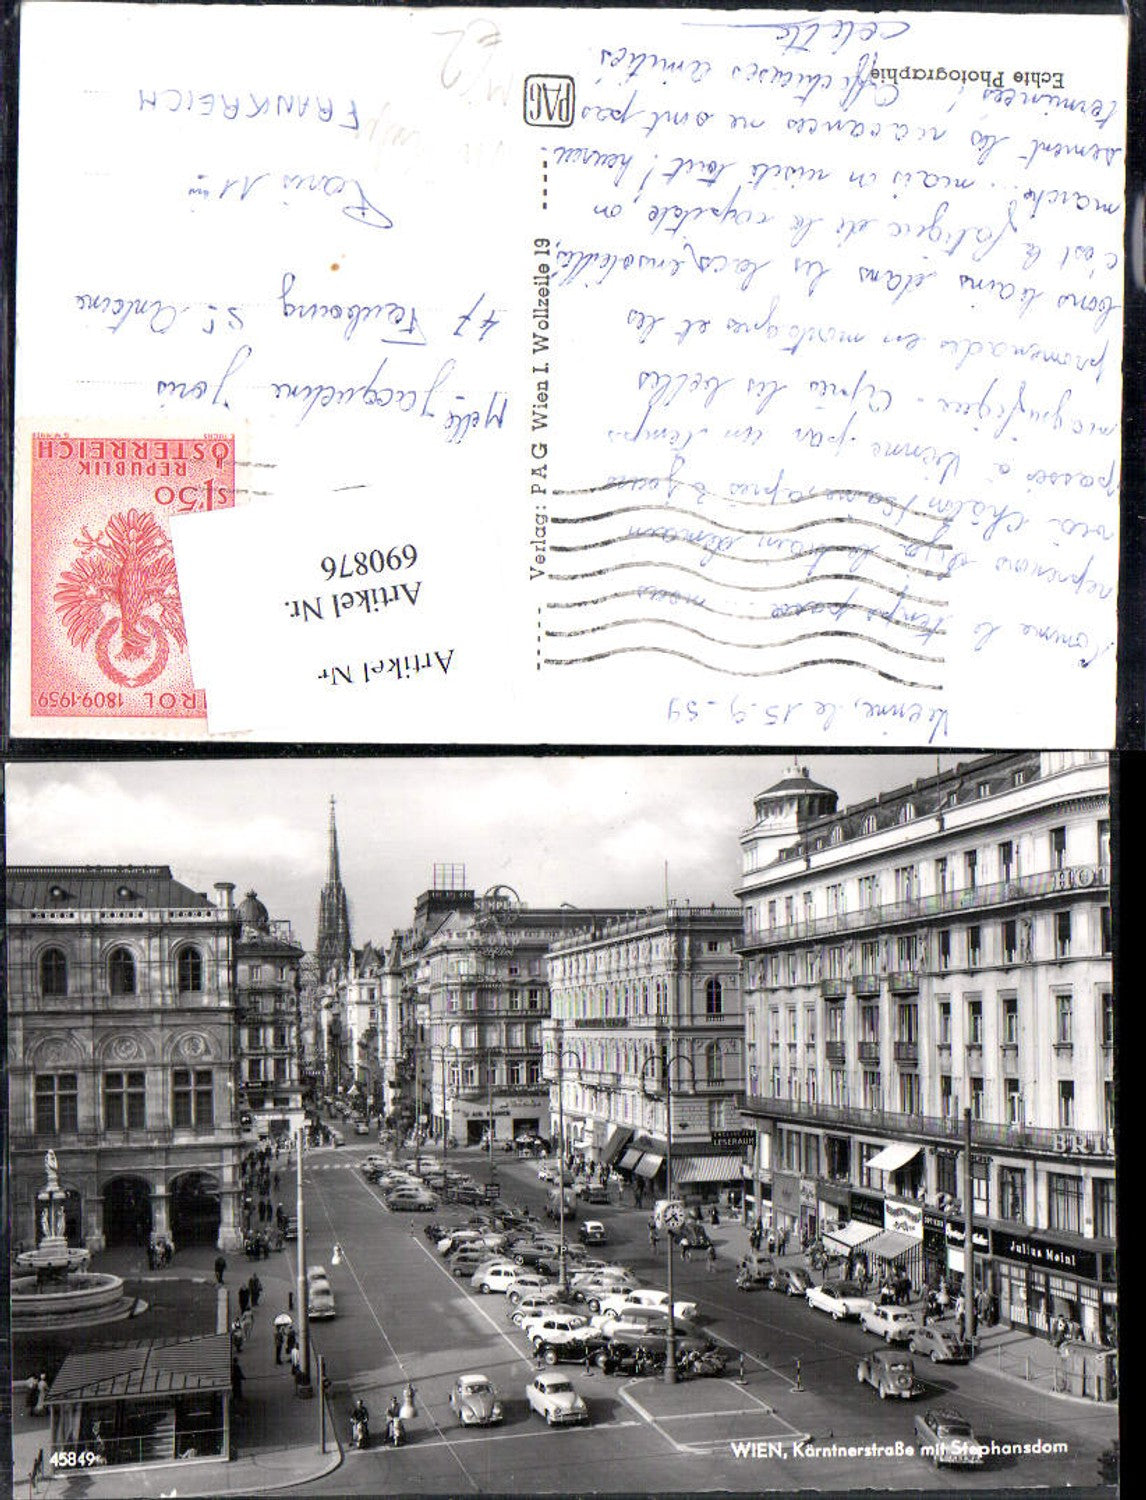 Vienne, le 15.9.59
Comme le temps passe... nous
reprenons déjà le train, demain
via Chalon/Saône, après 3 jours
passés à Vienne par un temps
magnifique. Après les belles
promenades en montagnes et les
bons bains dans les lacs ensoleillés,
c'est la fatigue de la capitale, on
marche... mais on visite tout! heureu-
sement les vacances ne sont pas
terminées! Affectueuses amitiés.
Colette
Verlag: PAG Wien I. Wollzeile 19
PAG
Echte Photographie
TIROL 1809-1959
S 1,50
REPUBLIK
ÖSTERREICH
Artikel Nr.
Artikel Nr.
690876
Melle Jacqueline Joris
47 Faubourg St Antoine
Paris 11
FRANKREICH
SEMPERIT
HOT
BRI
LESERAUM
Julius Meinl
45849
WIEN, Kärntnerstraße mit Stephansdom